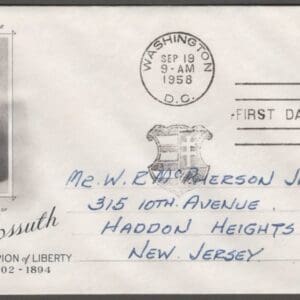 WASHINGTON
SEP 19
9-AM
1958
D.C.
FIRST DA
MR. W. R. MCPHERSON J
315 10TH. AVENUE.
HADDON HEIGHTS
NEW JERSEY
ossuth
PION of LIBERTY
02-1894